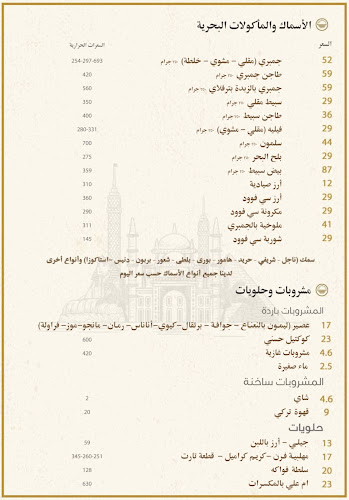 الأسماك والمأكولات البحرية
السعر السعرات الحرارية
52 جمبري (مقلي - مشوي - خلطة) ٢٥٠ جرام 254-297-693
59 طاجن جمبري ٢٥٠ جرام 420
59 جمبري بالزبدة بترفلاي ٢٥٠ جرام 560
29 سبيط مقلي ٢٥٠ جرام 350
36 طاجن سبيط ٢٥٠ جرام 400
29 فيليه (مقلي - مشوي) ٢٥٠ جرام 280-331
44 سلمون ٢٥٠ جرام 700
29 بلح البحر ٢٥٠ جرام 275
87 بيض سبيط ٢٥٠ جرام 359
12 أرز صيادية 310
29 أرز سي فوود 360
29 مكرونة سي فوود 290
41 ملوخية بالجمبري 311
29 شوربة سي فوود 145
سمك (ناجل - شريفي - حريد - هامور - بوري - بلطي - شعور - بربون - دنيس - استاكوزا) وأنواع أخرى
لدينا جميع أنواع الأسماك حسب سعر اليوم
مشروبات وحلويات
المشروبات باردة
17 عصير (ليمون بالنعناع - جوافة - برتقال-كيوي-أناناس- رمان- مانجو-موز- فراولة)
23 كوكتيل حسني 600
4.6 مشروبات غازية 420
2.5 ماء صغيرة
المشروبات ساخنة
4.6 شاي 2
9 قهوة تركي 20
حلويات
13 جيلي - أرز باللبن 59
17 مهلبية فرن -كريم كراميل - قطعة تارت 345-260-251
20 سلطة فواكه 128
23 ام علي بالمكسرات 630